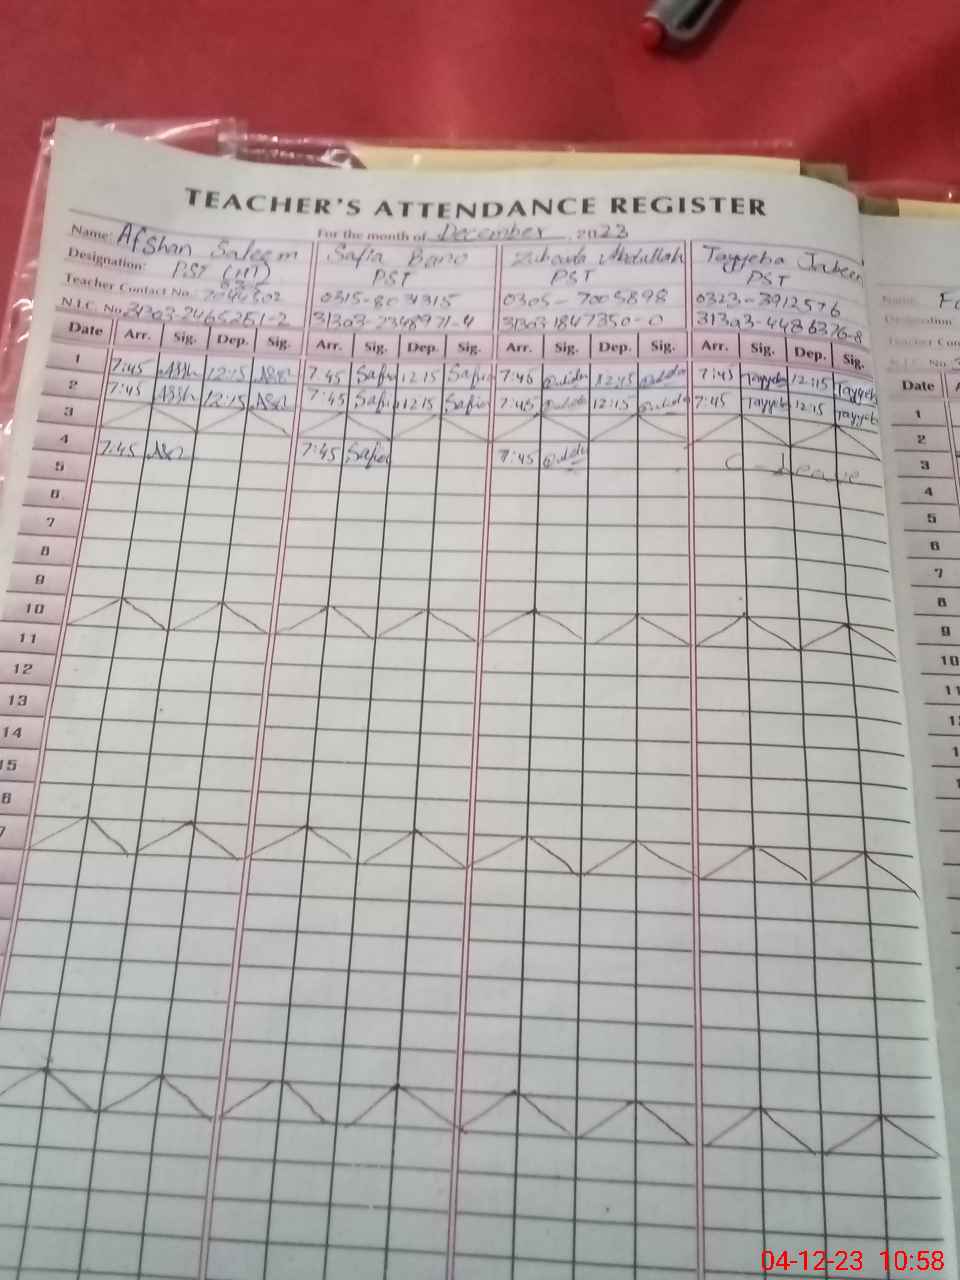 TEACHER'S ATTENDANCE REGISTER
For the month of December, 2023
Name: Afshan Saleem Safia Bano Abdullah Tayyeba Jabeen
Designation: PST PST PST PST
Teacher Contact No. 0315-8034315 0305-7005898 0323-3912576
N.I.C. No. 31303-2465251-2 31303-2348971-4 31303-1847350-0 31303-4486376-8
Date Arr. Sig. Dep. Sig. Arr. Sig. Dep. Sig. Arr. Sig. Dep. Sig. Arr. Sig. Dep. Sig.
1 7:45 12:15 7:45 Safia 12:15 Safia 7:45 12:15 7:45 Tayyeba 12:15 Tayyeba
2 7:45 12:15 7:45 Safia 12:15 Safia 7:45 12:15 7:45 Tayyeba 12:15 Tayyeba
3
4 7:45 7:45 Safia 7:45 C-Leave
5
6
7
8
9
10
11
12
13
14
15
6
7
Name:
Designation
Teacher Con
N.I.C. No.
Date
1
2
3
4
5
6
7
8
9
10
11
04-12-23 10:58